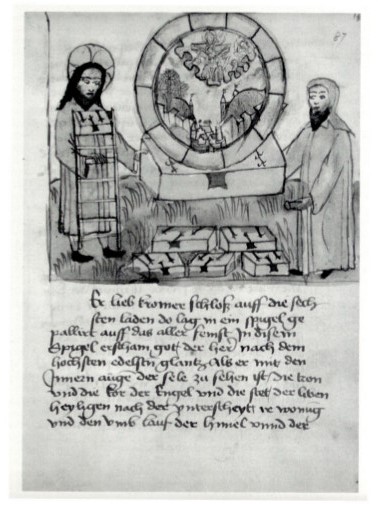 87
Er lieb kromer schloß auff die sech
sten laden do lag in ein spigel ge
pallirt auff das aller feinst In disem
Spigel erscham gott der her nach dem
hochsten edelsten glantz Als er mit den
Innern auge der sele zu sehen ist die tron
vnd die kor der Engel vnd die stet der liben
heyligen nach der vnterscheyt ir wonug
vnd den vmb lauf der himel vnnd der